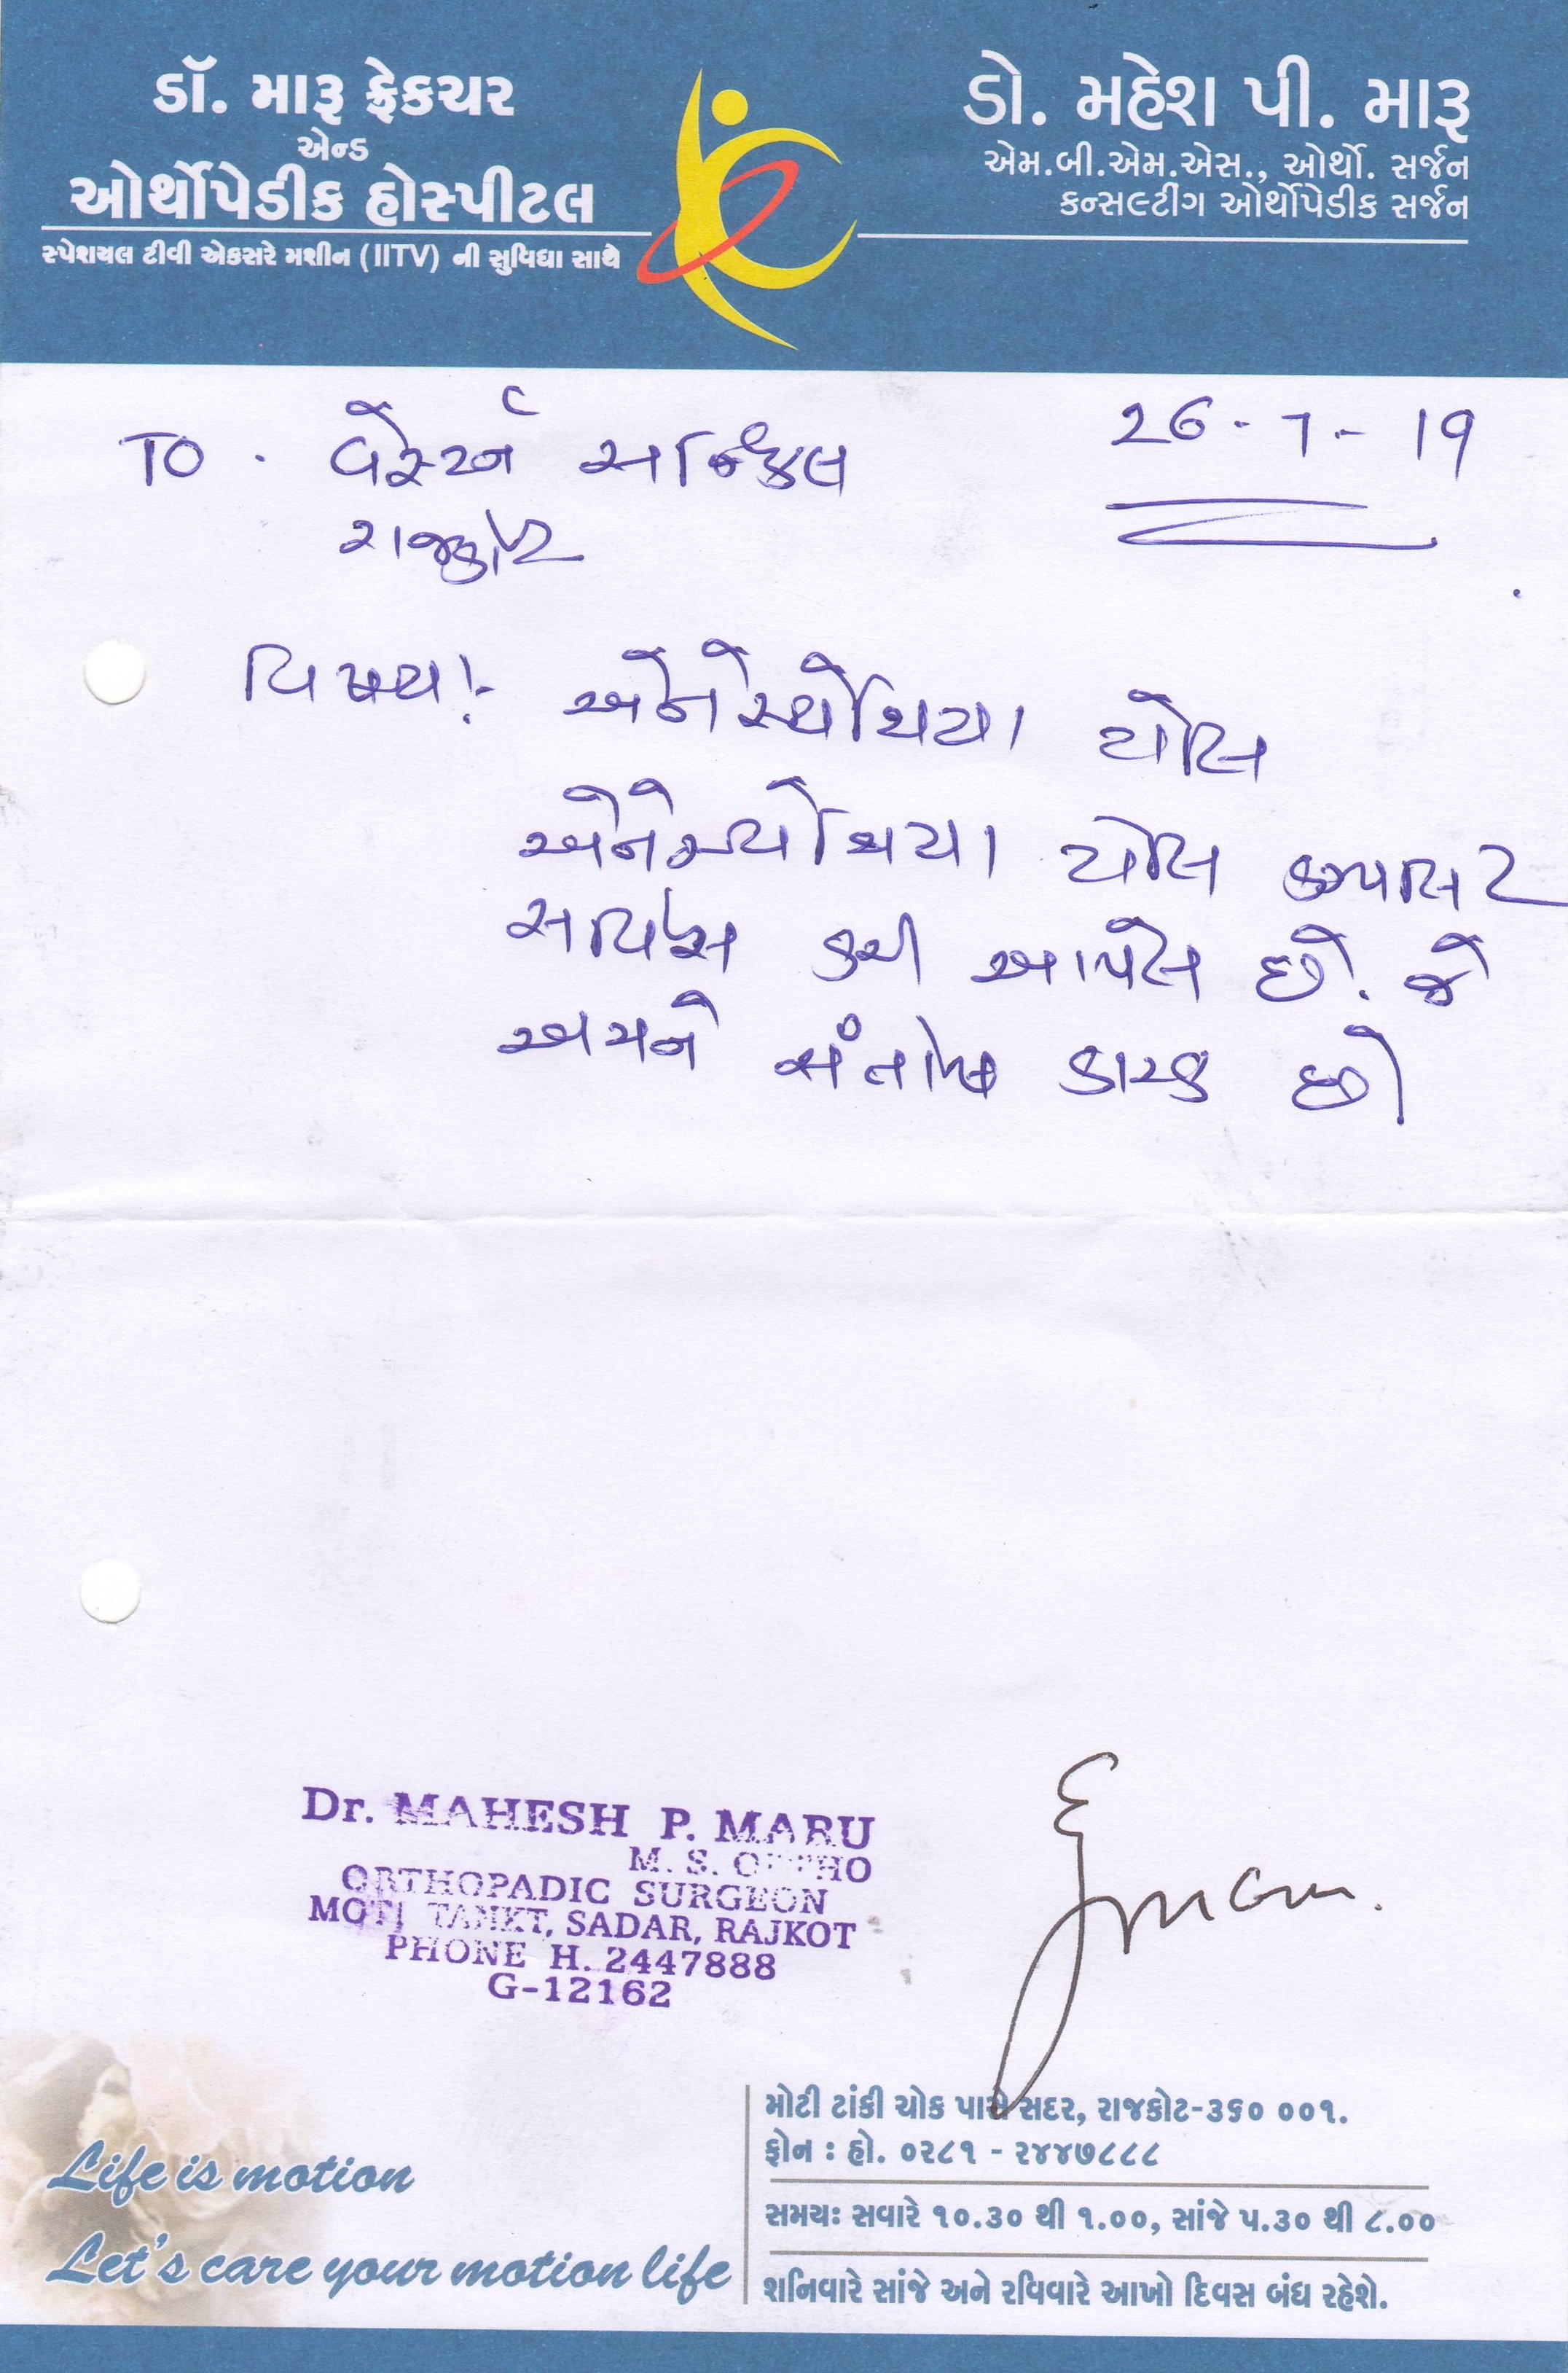 ડૉ. મારૂ ફ્રેકચર
એન્ડ
ઓર્થોપેડીક હોસ્પીટલ
સ્પેશયલ ટીવી એકસરે મશીન (IITV) ની સુવિધા સાથે
ડો. મહેશ પી. મારૂ
એમ.બી.એમ.એસ., ઓર્થો. સર્જન
કન્સલ્ટીંગ ઓર્થોપેડીક સર્જન
26-7-19
TO.
રાજકોટ
વિષય:- એનેસ્થેશિયા
એનેસ્થેશિયા
સર્વિસ કરી આપેલ છે. જે
અમને સંતોષ કારક છે
Dr. MAHESH P. MARU
M. S. ORTHO
ORTHOPADIC SURGEON
MOTI TANKI, SADAR, RAJKOT
PHONE H. 2447888
G-12162
Life is motion
Let's care your motion life
મોટી ટાંકી ચોક પાસે સદર, રાજકોટ-૩૬૦ ૦૦૧.
ફોન : હો. ૦૨૮૧ - ૨૪૪૭૮૮૮
સમયઃ સવારે ૧૦.૩૦ થી ૧.૦૦, સાંજે ૫.૩૦ થી ૮.૦૦
શનિવારે સાંજે અને રવિવારે આખો દિવસ બંધ રહેશે.